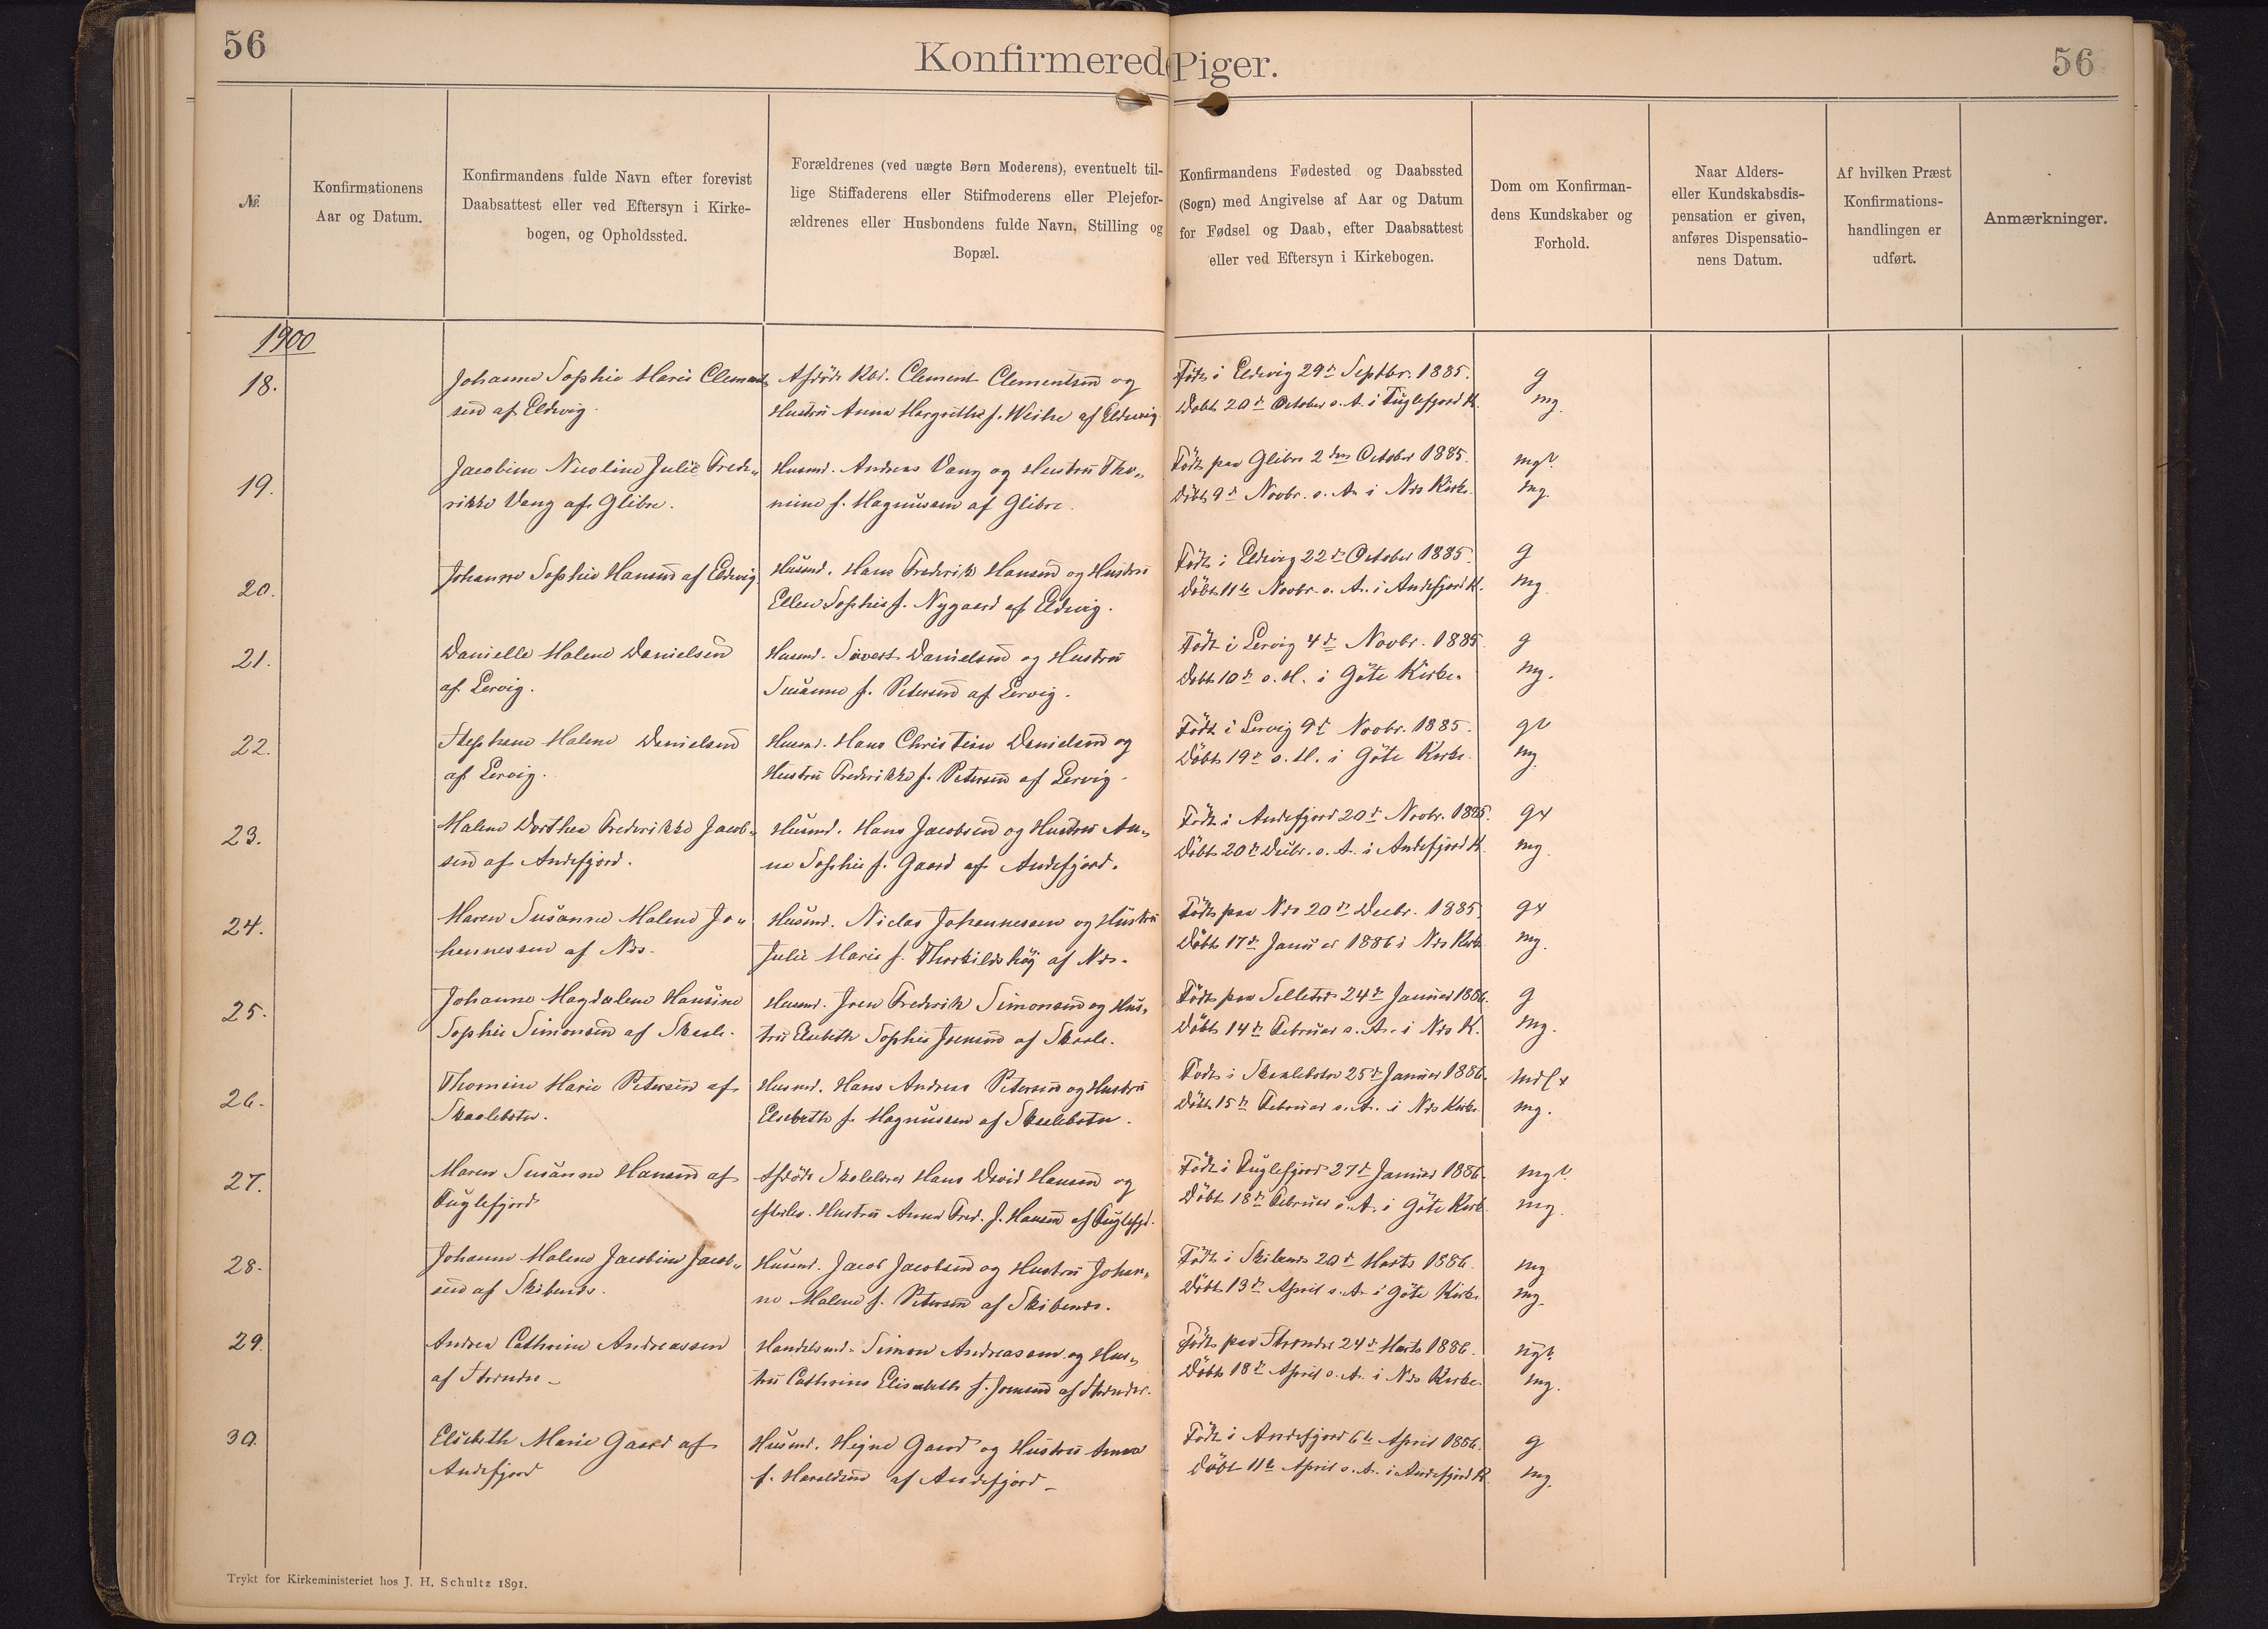 56
Konfirmerede Piger.
56
№.
Konfirmationens
Aar og Datum.
Konfirmandens fulde Navn efter forevist
Daabsattest eller ved Eftersyn i Kirke-
bogen, og Opholdssted.
Forældrenes (ved uægte Børn Moderens), eventuelt til-
lige Stiffaderens eller Stifmoderens eller Plejefor-
ældrenes eller Husbondens fulde Navn, Stilling og
Bopæl.
Konfirmandens Fødested og Daabssted
(Sogn) med Angivelse af Aar og Datum
for Fødsel og Daab, efter Daabsattest
eller ved Eftersyn i Kirkebogen.
Dom om Konfirman-
dens Kundskaber og
Forhold.
Naar Alders-
eller Kundskabsdis-
pensation er given,
anføres Dispensatio-
nens Datum.
Af hvilken Præst
Konfirmations-
handlingen er
udført.
Anmærkninger.
1900
18.
Johanne Sophie Marie Clement-
sen af Eldevig.
Afdøde Kbd. Clement Clementsen og
Hustru Anna Margrethe f. Weihe af Eldevig
Født i Eldevig 29de Septbr. 1885.
Döbt 20de October s. A. i Fuglefjord K.
g
mg.
19.
Jacobine Nicoline Julie Frede„
rikke Vang af Glibre.
Husmd. Andreas Vang og Hustru Tho„
mine f. Magnussen af Glibre.
Født paa Glibre 2den October 1885.
Döbt 9de Novbr. s. A. i Næs Kirke.
mg?
mg.
20.
Johanne Sophie Hansen af Eldevig
Husmd. Hans Frederik Hansen og Hustru
Ellen Sophie f. Nygaard af Eldevig.
Født i Eldevig 22de October 1885.
Döbt 11te Novbr. s. A. i Andefjord K.
g
mg
21.
Danielle Malene Danielsen
af Lervig.
Husmd. Sivert Danielsen og Hustru
Susanne f. Petersen af Lervig.
Født i Lervig 4de Novbr. 1885.
Döbt 10de s. M. i Göte Kirke.
g
mg.
22.
Stephane Malene Danielsen
af Lervig.
Husmd. Hans Christian Danielsen og
Hustru Frederikke f. Petersen af Lervig.
Født i Lervig 9de Novbr. 1885.
Döbt 19de s. M. i Göte Kirke.
g?
mg.
23.
Malene Dorthea Frederikke Jacob„
sen af Andefjord.
Husmd. Hans Jacobsen og Hustru An„
na Sophie f. Gaard af Andefjord.
Født i Andefjord 20de Novbr. 1885.
Döbt 20de Decbr. s. A. i Andefjord K.
gx
mg.
24.
Maren Susanne Malene Jo„
hannessen af Næs.
Husmd. Niclas Johannessen og Hustru
Julie Marie f. Thorkildshöj af Næs.
Født paa Næs 20de Decbr. 1885.
Döbt 17de Januar 1886 i Næs Kirke
gx
mg.
25.
Johanne Magdalene Hansine
Sophie Simonsen af Skaale.
Husmd. Joen Frederik Simonsen og Hus„
tru Elsebeth Sophie Joensen af Skaale.
Født paa Selletræ 24de Januar 1886.
Döbt 14de Februar s. A. i Næs K.
g
mg.
26.
Thomine Marie Petersen af
Skaalebotn.
Husmd. Hans Andreas Petersen og Hustru
Elsebeth f. Magnussen af Skaalebotn.
Født i Skaalebotn 25de Januar 1886.
Döbt 15de Februar s. A. i Næs Kirke
mdlx
mg.
27.
Maren Susanne Hansen af
Fuglefjord
Afdøde Skolelærer Hans David Hansen og
efterlev. Hustru Anna Fred. J. Hansen af Fuglefjd.
Født i Fuglefjord 27de Januar 1886.
Döbt 18de Februar s. A. i Göte Kirke
mg?
mg.
28.
Johanne Malene Jacobine Jacob„
sen af Skibenæs.
Husmd. Jacob Jacobsen og Hustru Johan„
ne Malene f. Petersen af Skibenæs.
Født i Skibenæs 20de Marts 1886.
Döbt 13de April s. A. i Göte Kirke
mg
mg.
29.
Andrea Cathrine Andreassen
af Strender.
Handelsmd. Simon Andreassen og Hus„
tru Cathrine Elisabeth f. Joensen af Strender.
Født paa Strender 24de Marts 1886.
Döbt 18de April s. A. i Næs Kirke.
mg?
mg.
30.
Elsebeth Marie Gaard af
Andefjord
Husmd. Hejne Gaard og Hustru Anna
f. Haraldsen af Andefjord
Født i Andefjord 6te April 1886.
Döbt 11te April s. A. i Andefjord K.
g
mg.
Trykt for Kirkeministeriet hos J. H. Schultz 1891.